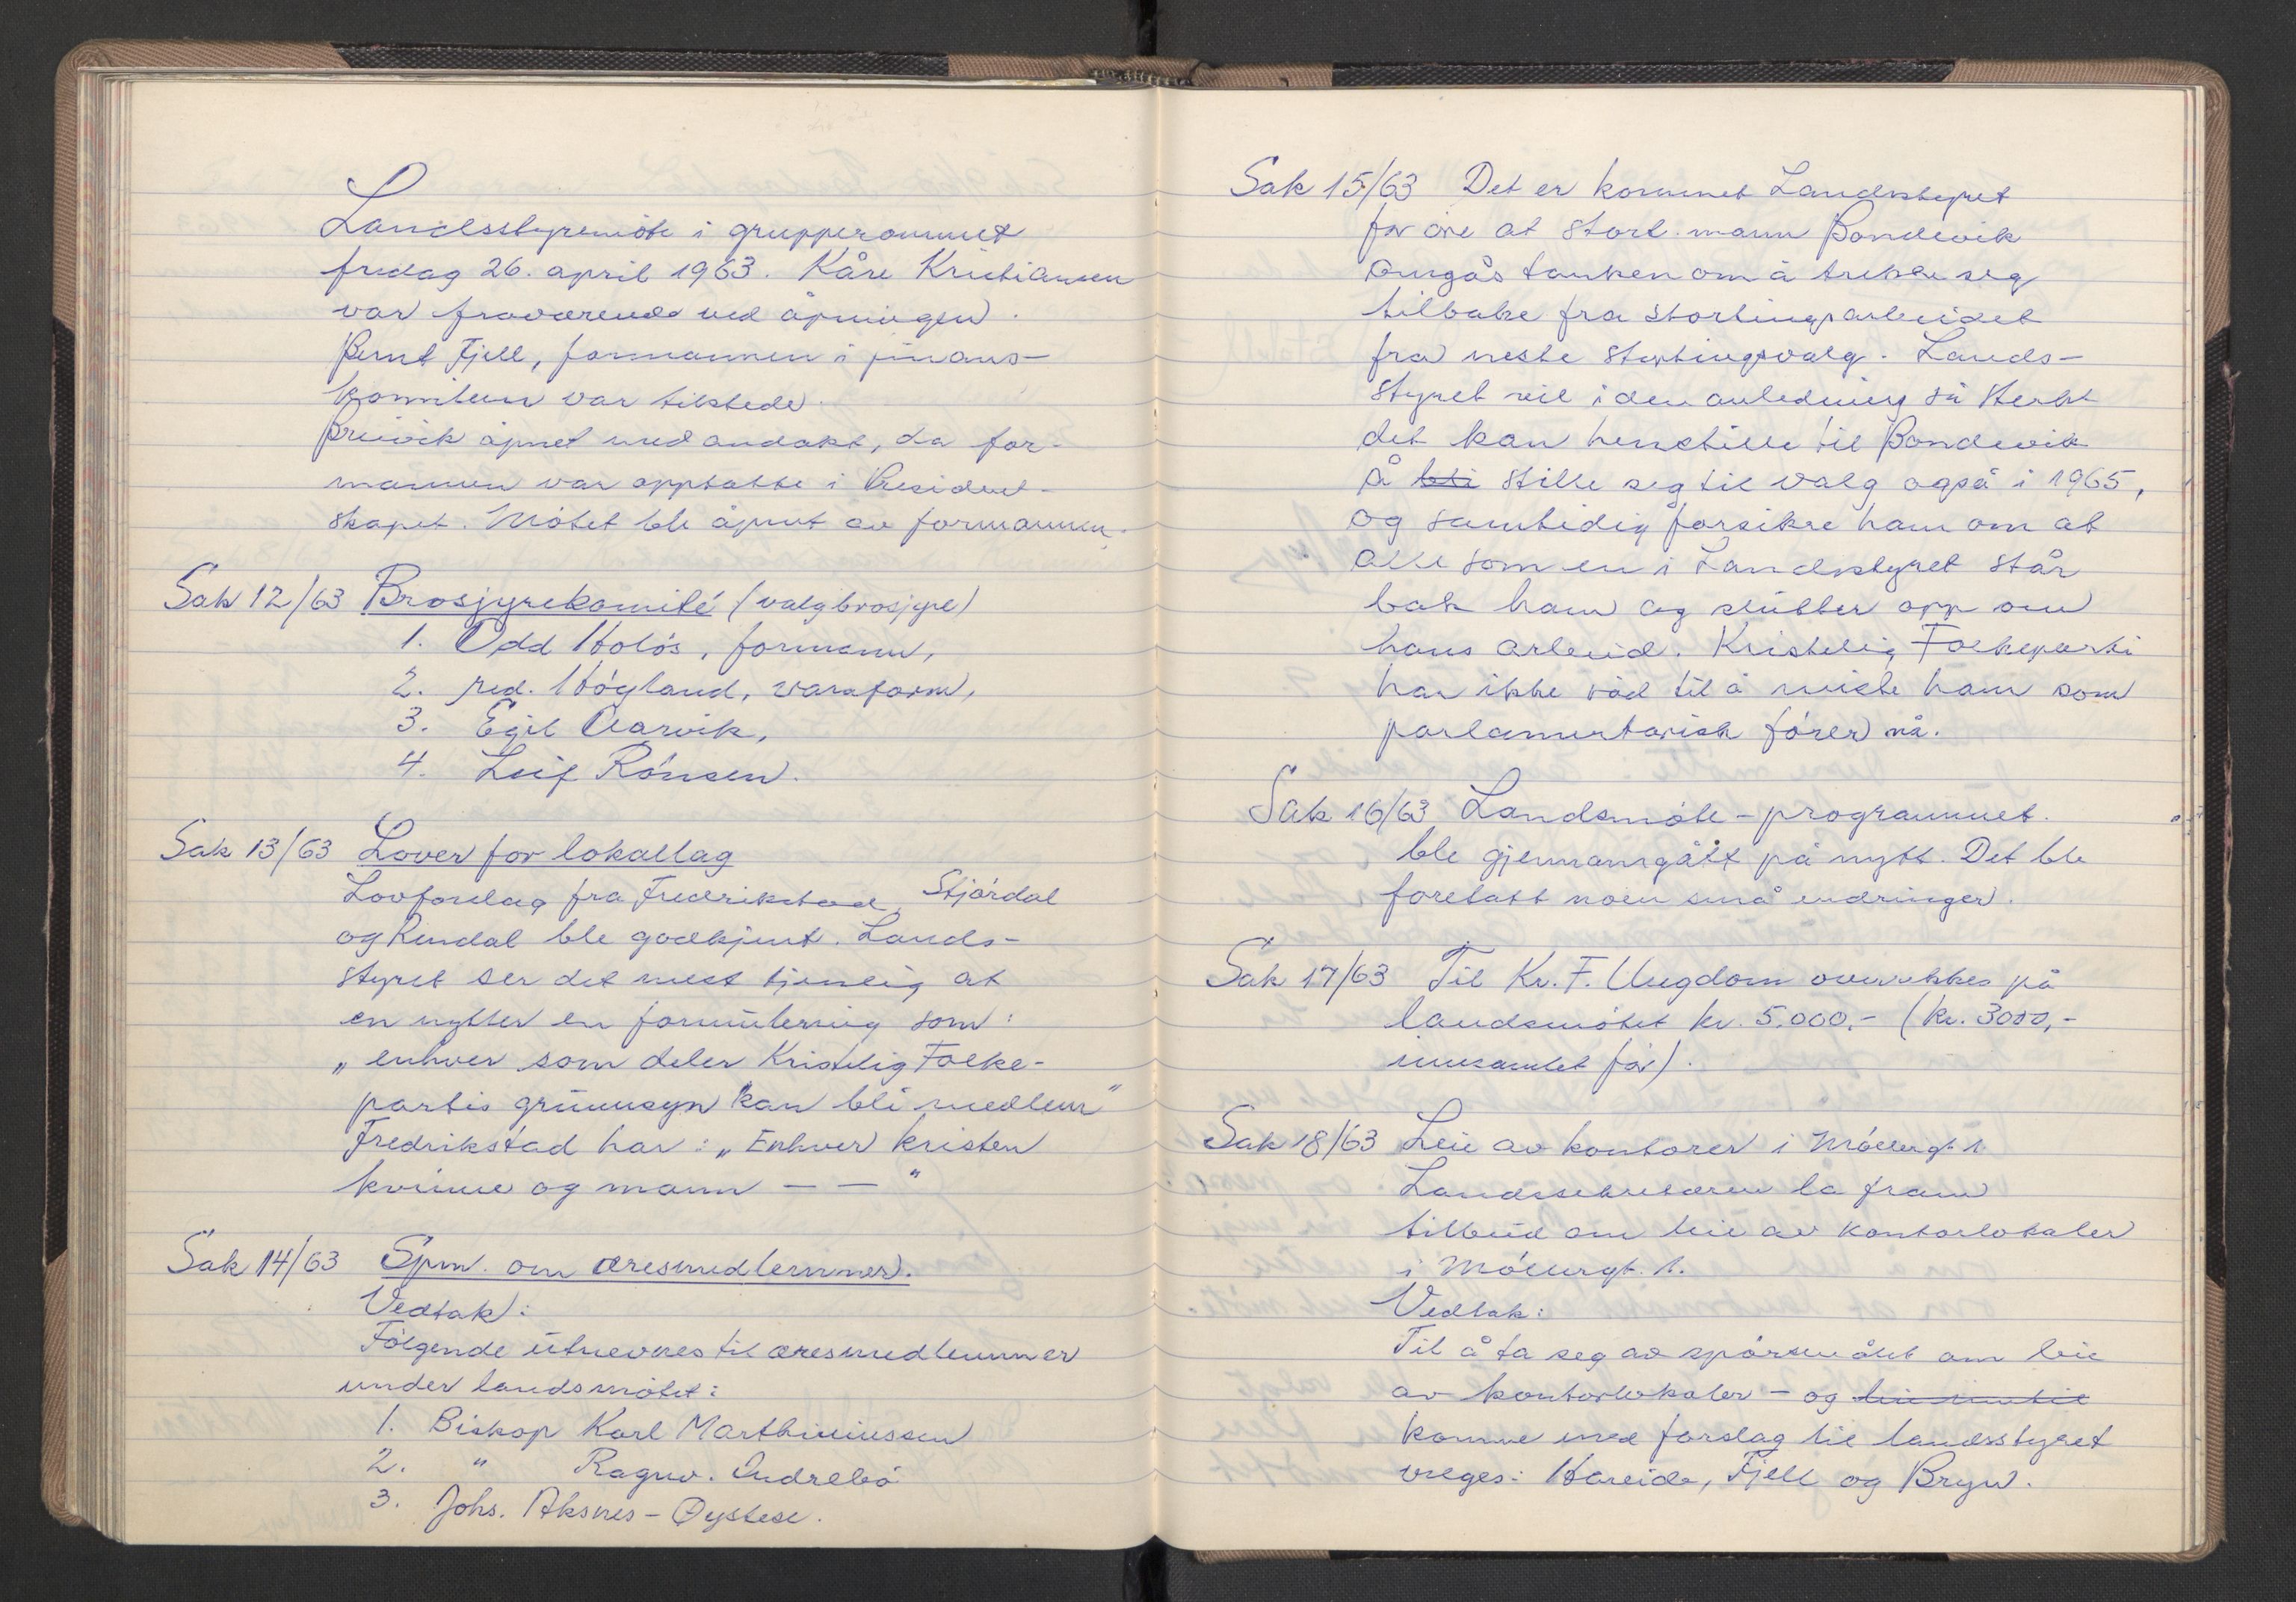 Landsstyremöte i grupperommet
fredag 26. april 1963. Kåre Kristiansen
var fraværende ved åpningen.
Bernt Fjell, formannen i finans-
komiteen var tilstede.
Breivik åpnet med andakt, da for-
mannen var opptatt i President-
skapet. Mötet ble åpnet av formannen.
Sak 12/63 Brosjyrekomité (valgbrosjyre)
1. Odd Holös, formann,
2. red. Höyland, varaform,
3. Egil Aarvik,
4. Leif Rönsen.
Sak 13/63 Lover for lokallag
Lovforslag fra Fredrikstad, Stjördal
og Rindal ble godkjent. Lands-
styret ser det mest tjenlig at
en nytter en formulering som:
„enhver som deler Kristelig Folke-
partis grunnsyn kan bli medlem"
Fredrikstad har: „Enhver kristen
kvinne og mann — — "
Sak 14/63 Spm. om æresmedlemmer.
Vedtak:
Fölgende utnevnes til æresmedlemmer
under landsmötet:
1. Biskop Karl Marthinussen
2. " Ragnv. Indrebö
3. Johs. Aksnes - Øystese.
Sak 15/63 Det er kommet Landsstyret
for öre at stort.mann Bondevik
omgås tanken om å trekke seg
tilbake fra stortingsarbeidet
fra neste stortingsvalg. Lands-
styret vil i den anledning så sterkt
det kan henstille til Bondevik
å bli stille seg til valg også i 1965,
og samtidig forsikre ham om at
alle som en i Landsstyret står
bak ham og slutter opp om
hans arbeid. Kristelig Folkeparti
har ikke råd til å miste ham som
parlamentarisk förer nå.
Sak 16/63 Landsmöte-programmet.
ble gjennomgått på nytt. Det ble
foretatt noen små endringer.
Sak 17/63 Til Kr. F. Ungdom overrekkes på
landsmötet kr. 5.000,- (kr. 3000,-
innsamlet för).
Sak 18/63 Leie av kontorer i Möllergt. 1.
Landssekretæren la fram
tilbud om leie av kontorlokaler
i Möllergt. 1.
Vedtak:
Til å ta seg av spörsmålet om leie
av kontorlokaler - og
komme med forslag til landsstyret
velges: Hareide, Fjell og Bryn.